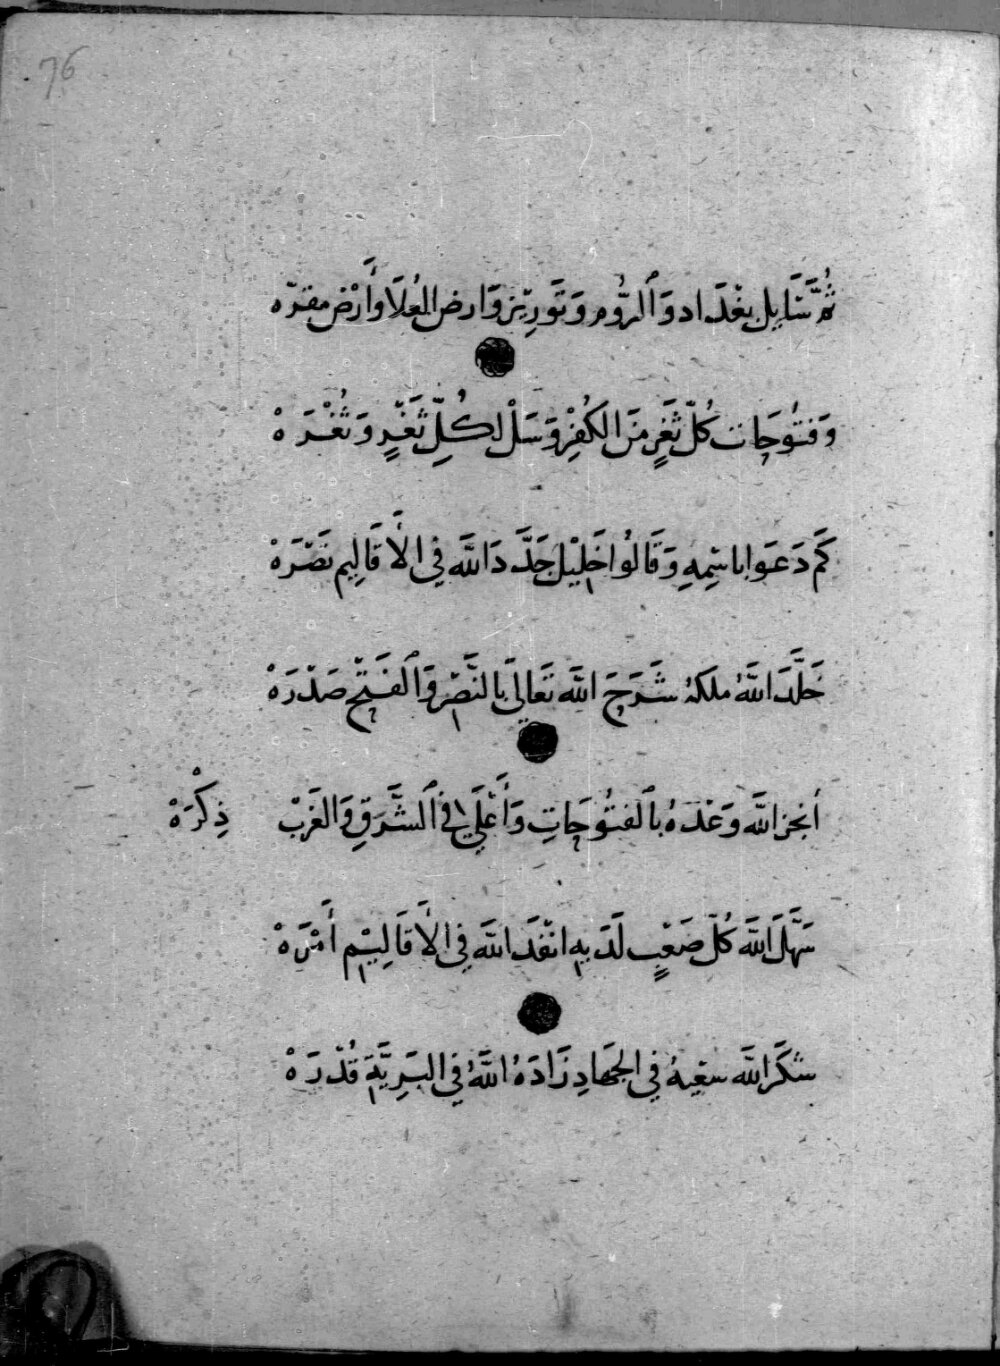 76
ثُمَّ سَايِل بغْدَاد وَٱلرُّوم وَتَوَرِيْز وَارض العُلَا وَأَرْض مقرّه
وَفتُوحَات كُلّ ثَغَرٍ مَنَ الكُفِرْ وَسَلْ لكُلِّ ثَغْرٍ وَثُغْرَهْ
كَم دَعَوا باسْمِهِ وَقَالُوا خَلِيْل جَدَّدَ اللَّه فِي الأَقَالِيم نَصْرَهْ
خَلَّدَ اللَّهُ ملكهُ شَرَحَ اللَّه تَعَالى بالنَّصْر وَٱلفَتْح صَدْرَهْ
أنجز اللَّه وَعْدَهُ بٱلفتُوحَاتِ وَأَعْلَى في ٱلشَّرَقِ وَالغَرْب ذِكْرَهْ
سَهَّلَ اللَّه كُلّ صَعْبٍ لَدَيهِ انْفَدَ اللَّه فِي الأَقَالِيْم أَمْرَهْ
شكَرَ اللَّه سعْيهُ فِي الجهَادِ زَادَهُ اللَّهُ فِي البَرِيَّةِ قُدْرَهْ